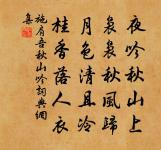 夜吟秋山上
裊裊秋風歸
月色清且冷
桂香落人衣
施肩吾秋山吟詞典網
集